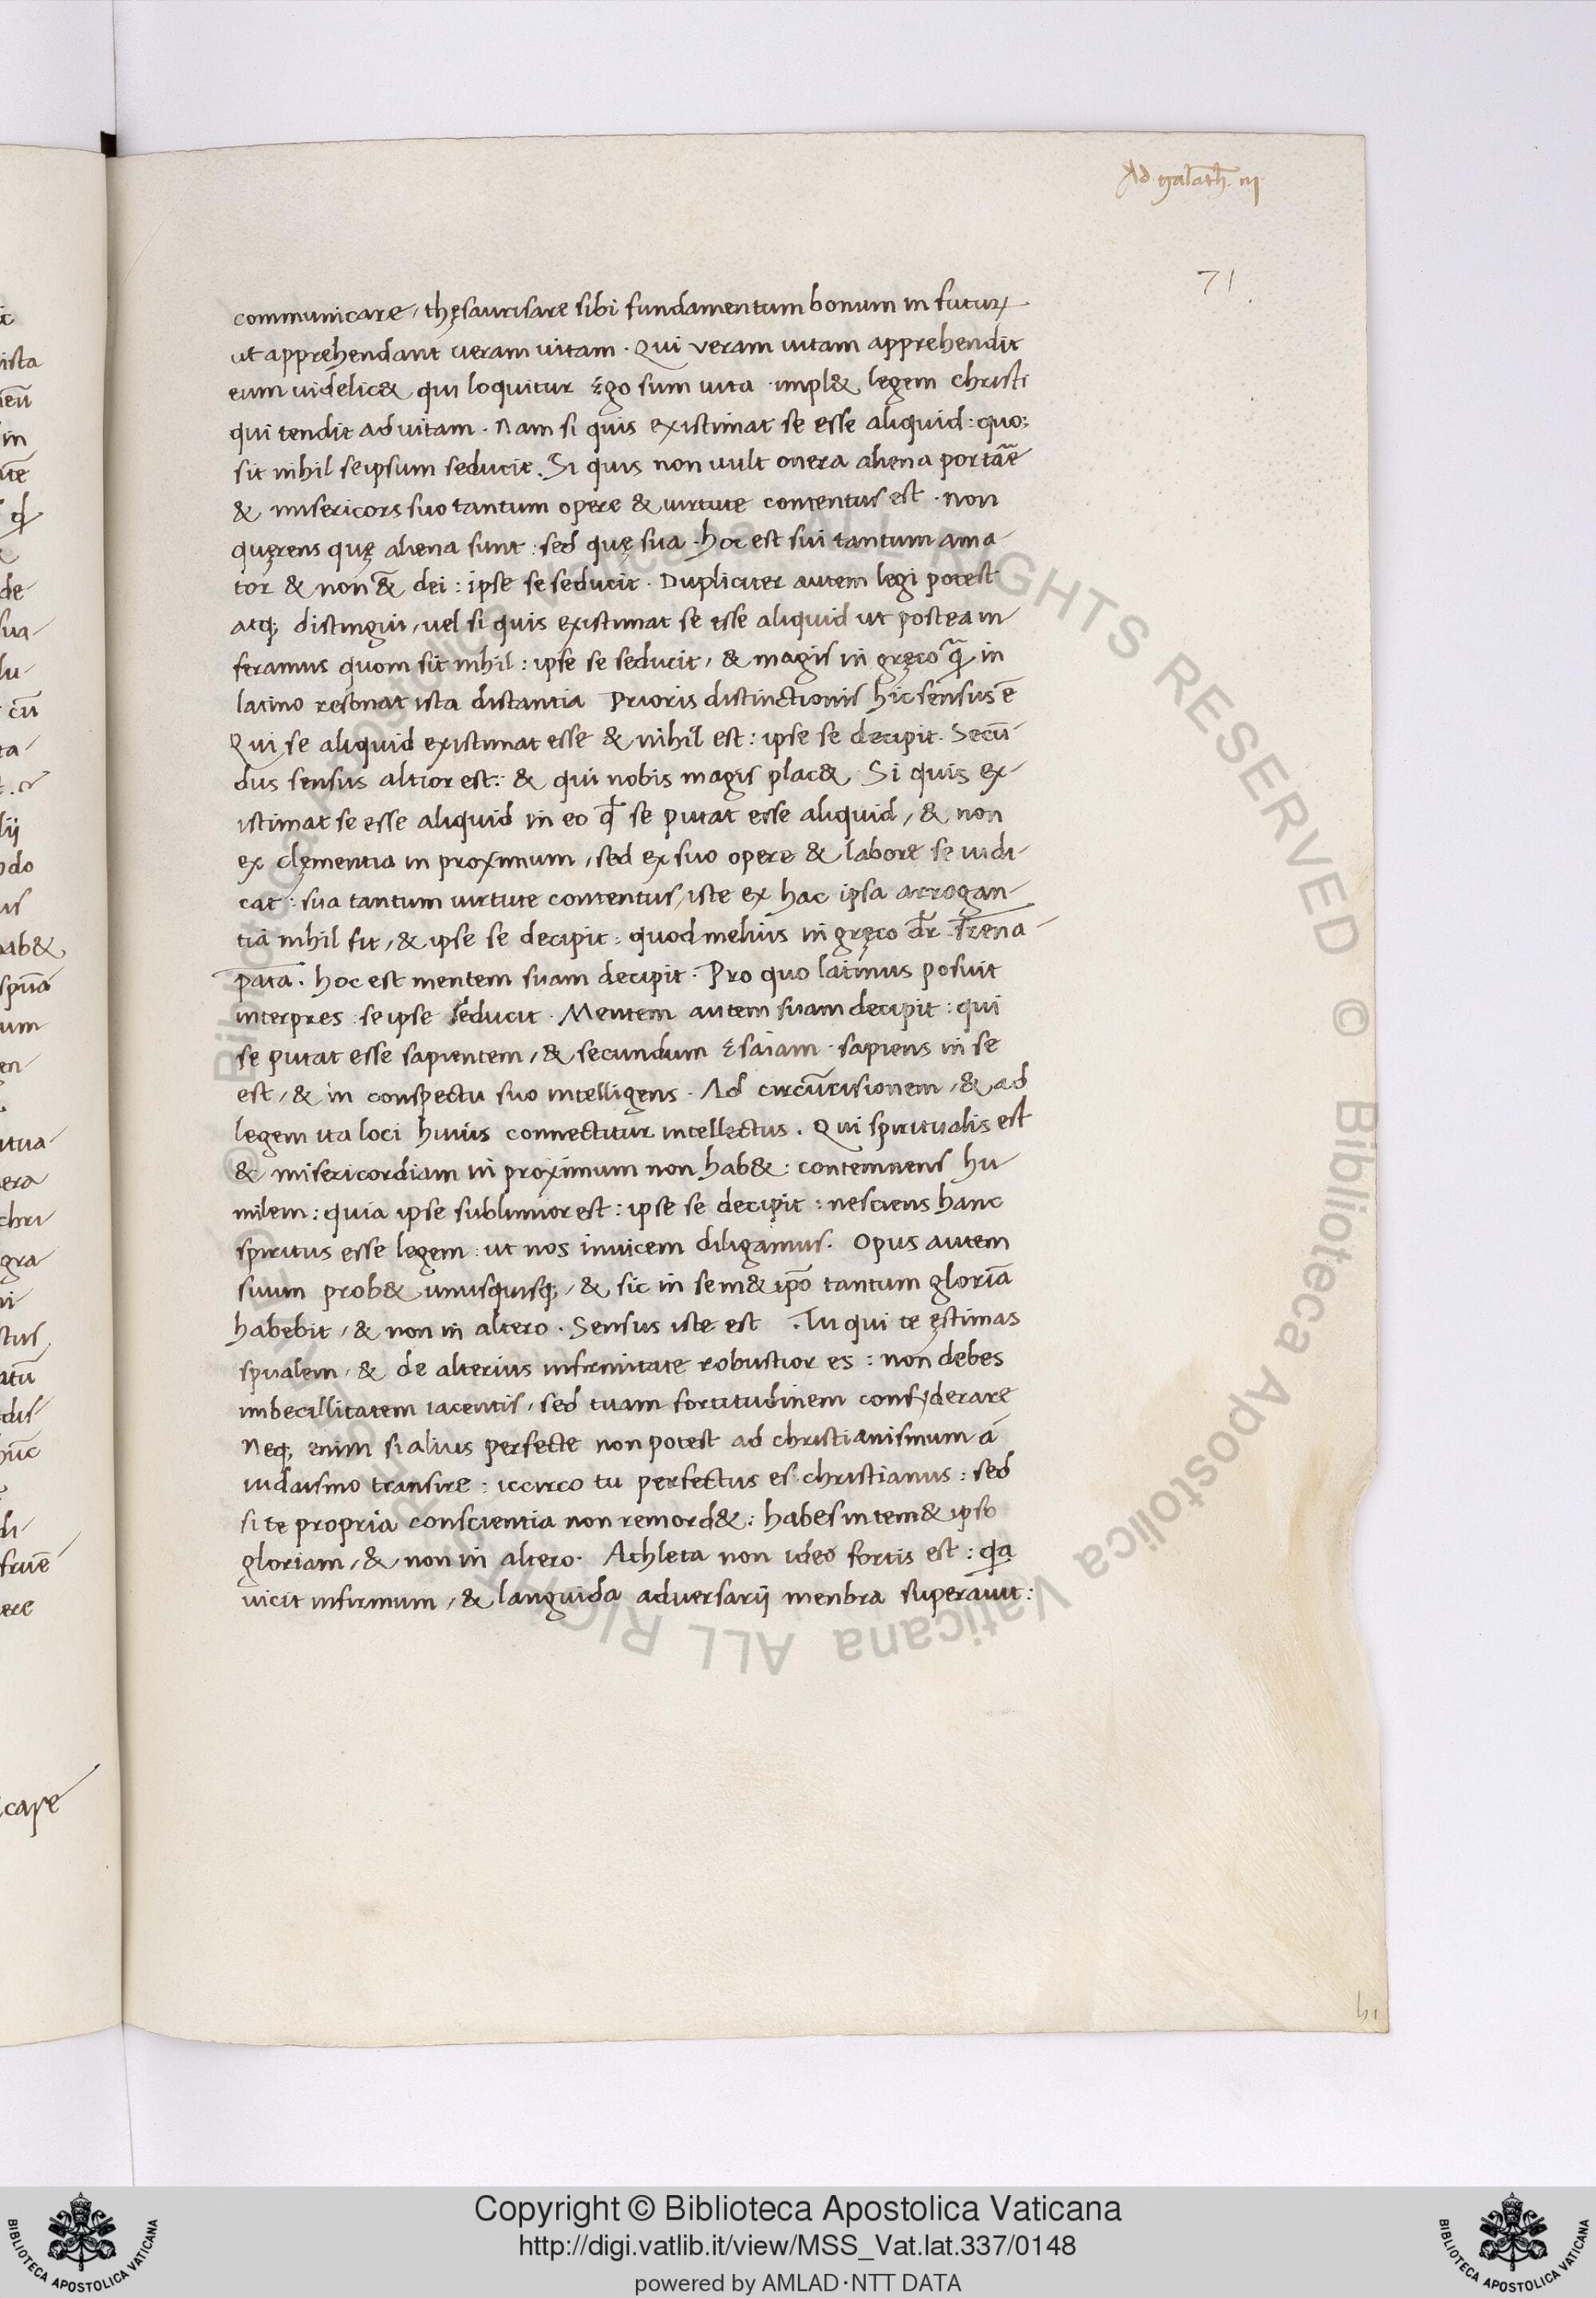 Ad galath. iij
71
communicare, thęsaurisare sibi fundamentum bonum in futurꝝ
ut apprehendant ueram uitam . Qui veram uitam apprehendit
eum uidelic& qui loquitur Ego sum uita . impl& legem christi
qui tendit ad vitam . Nam si quis existimat se esse aliquid : quo;
sit nihil seipsum seducit . Si quis non uult onera aliena
& misericors suo tantum opere & uirtute contentus est . non
quęrens quę aliena sunt : sed quę sua . hoc est sui tantum ama-
tor & non & dei : ipse se seducit . Dupliciter autem legi potest
atq; distingui, uel si quis existimat se esse aliquid ut postea in-
feramus quom sit nihil : ipse se seducit, & magis in gręco q̃ in
latino resonat ista distantia Prioris distinctionis hic sensus ē
Qui se aliquid existimat esse & nihil est : ipse se decipit . Secū-
dus sensus altior est : & qui nobis magis plac& . Si quis ex-
istimat se esse aliquid in eo qđ se putat esse aliquid, & non
ex clęmentia in proximum, sed ex suo opere & labore se iudi-
cat : sua tantum uirtute contentus, iste ex hac ipsa arrogan-
tia nihil fit, & ipse se decipit : quod melius in gręco dr̄ frena-
pata . hoc est mentem suam decipit . Pro quo latinus posuit
interpres : se ipse seducit . Mentem autem suam decipit : qui
se putat esse sapientem, & secundum Esaiam . sapiens in se
est, & in conspectu suo intelligens . Ad circūcisionem, & ad
legem ita loci huius connectitur intellectus . Qui spiritualis est
& misericordiam in proximum non hab& : contemnens hu-
milem : quia ipse sublimior est : ipse se decipit : nesciens hanc
spiritus esse legem : ut nos invicem diligamus . Opus autem
suum prob& unusquisq;, & sic in sem& ip̄o tantum gloriā
habebit, & non in altero . Sensus iste est . Tu qui te ęstimas
spualem, & de alterius infirmitate robustior es : non debes
imbecillitatem iacentis, sed tuam fortitudinem considerare
Neq; enim si alius perfecte non potest ad christianismum a
iudaismo transire : iccirco tu perfectus es christianus : sed
si te propria conscientia non remord& : habes in tem& ipso
gloriam, & non in altero . Athleta non ideo fortis est : qa
uicit infirmum, & languida adversarij menbra superauit :
hi
Copyright © Biblioteca Apostolica Vaticana
http://digi.vatlib.it/view/MSS_Vat.lat.337/0148
powered by AMLAD·NTT DATA